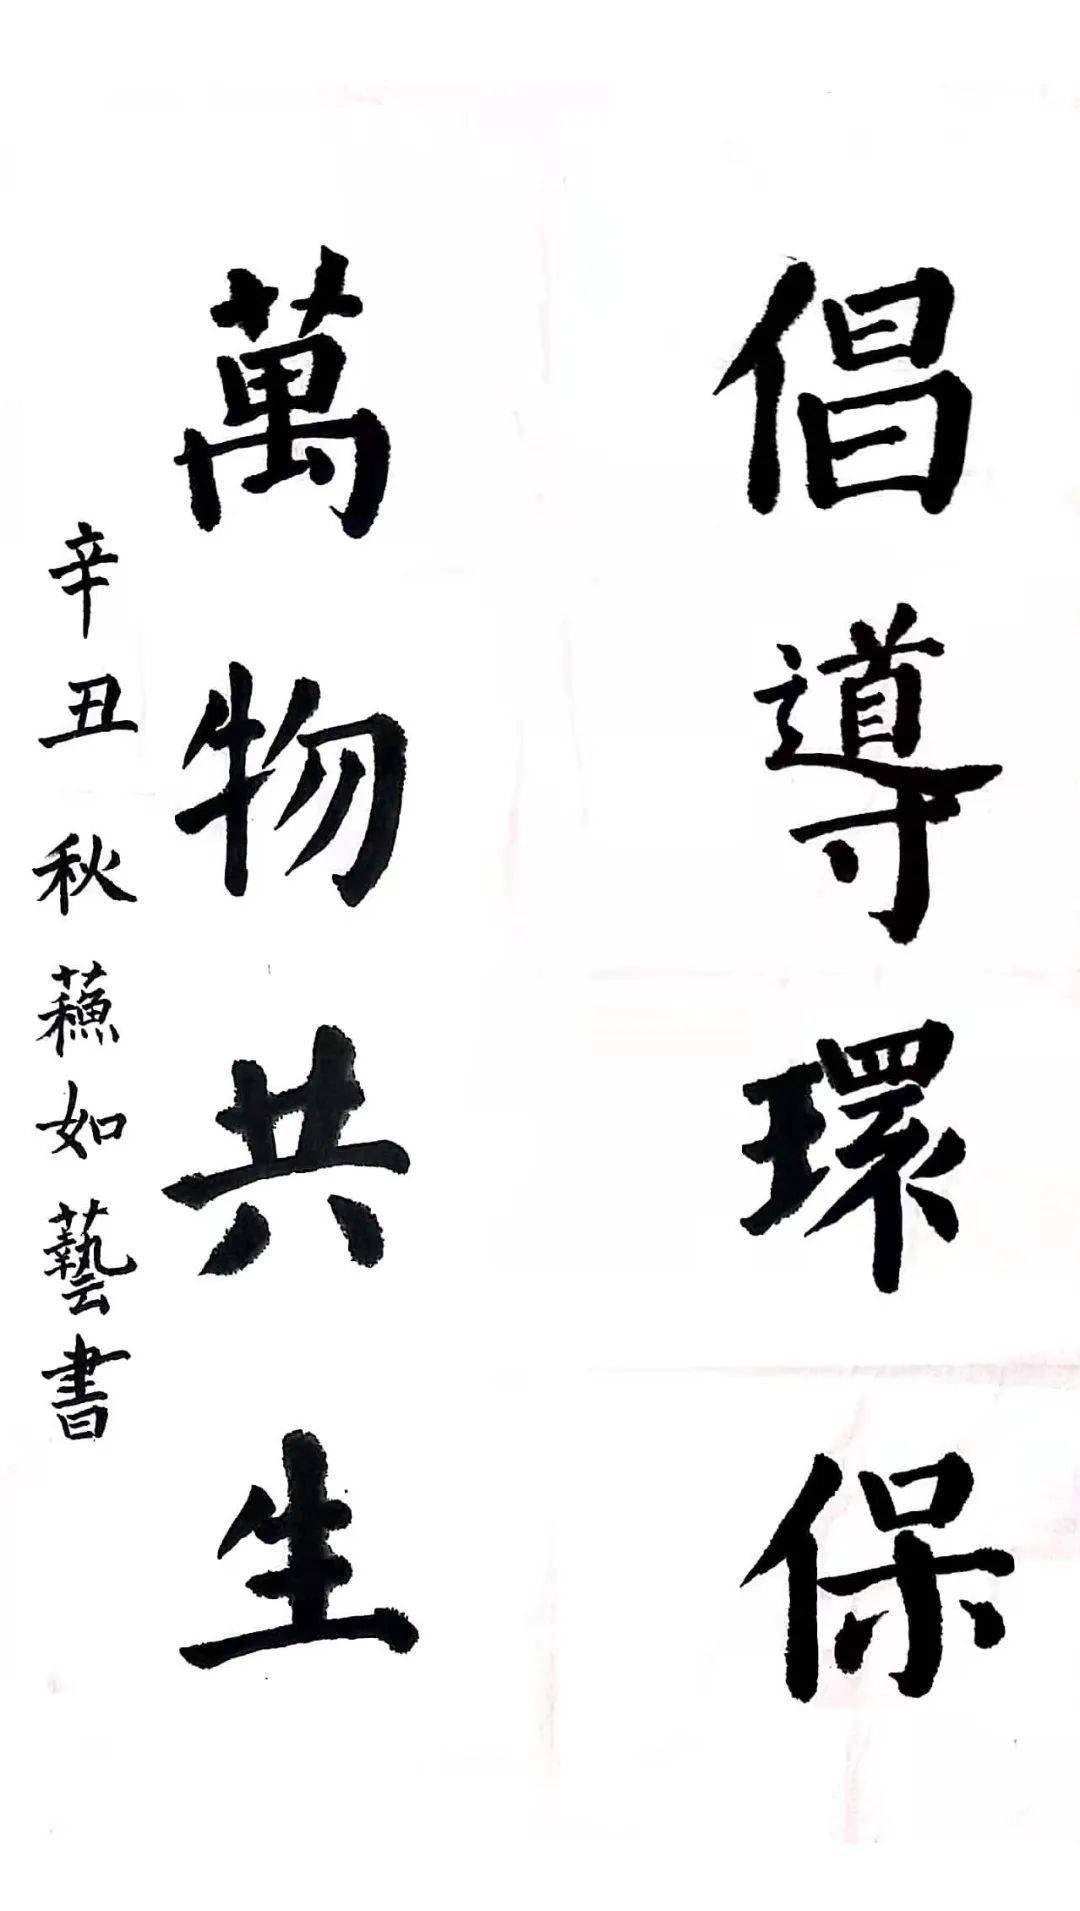 倡導環保
萬物共生
辛丑秋蘓如藝書